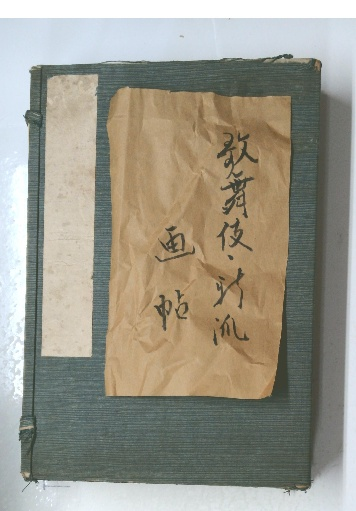 歌舞伎、新派
画帖